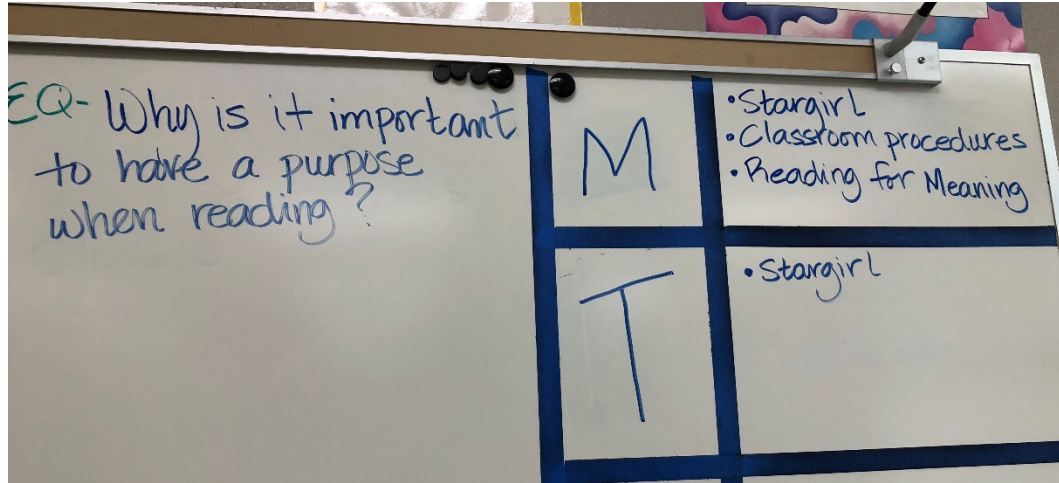 EQ- Why is it important
to have a purpose
when reading?
M
• Stargirl
• Classroom procedures
• Reading for Meaning
T
• Stargirl